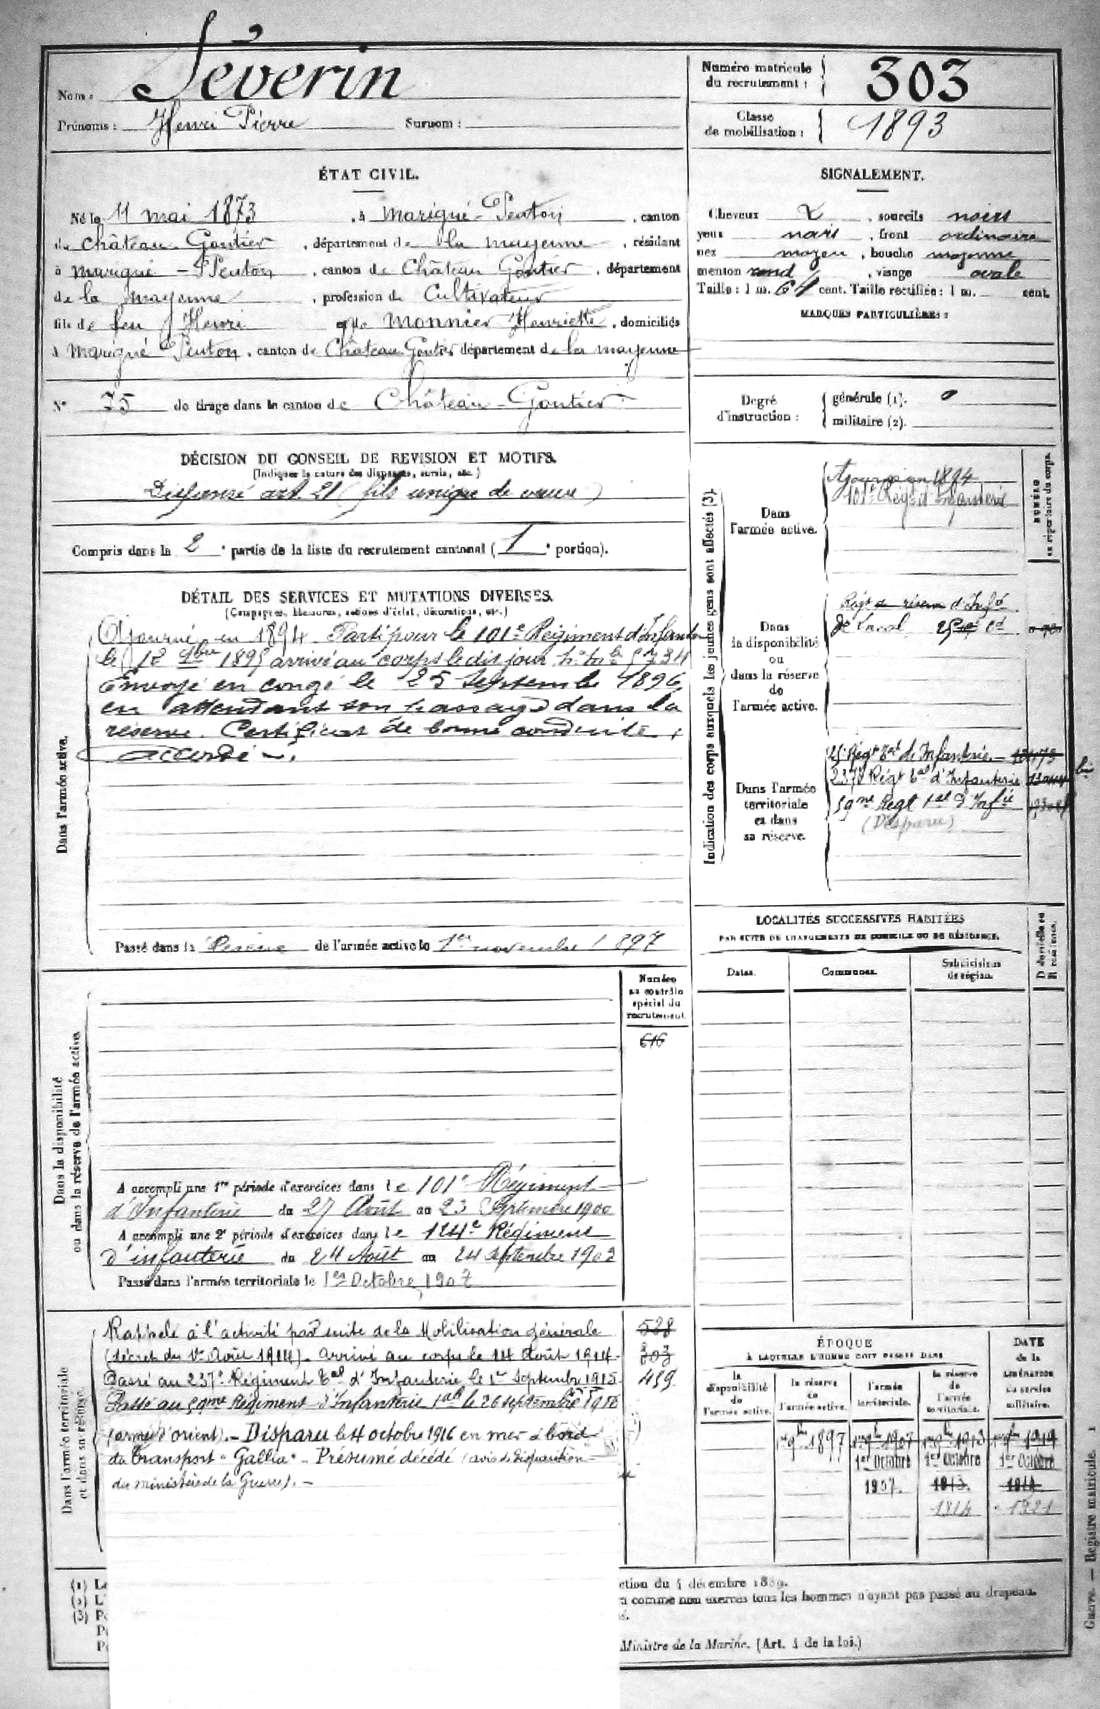 Nom : Séverin
Prénoms : Henri Pierre Surnom :
Numéro matricule
du recrutement : 303
Classe
de mobilisation : 1893
ÉTAT CIVIL.
Né le 11 mai 1873, à Marigné-Peuton, canton
de Château-Gontier, département de la mayenne, résidant
à Marigné-Peuton, canton de Château Gontier, département
de la mayenne, profession de Cultivateur
fils de feu Henri et de Monnier Henriette, domiciliés
à Marigné Peuton, canton de Château Gontier département de la mayenne
N° 75 de tirage dans le canton de Château-Gontier
SIGNALEMENT.
Cheveux, sourcils noirs
yeux noirs, front ordinaire
nez moyen, bouche moyenne
menton rond, visage ovale
Taille : 1 m. 64 cent. Taille rectifiée : 1 m. cent.
MARQUES PARTICULIÈRES :
Degré
d'instruction :
générale (1). 0
militaire (2).
DÉCISION DU CONSEIL DE REVISION ET MOTIFS.
(Indiquer la nature des dispenses, sursis, etc.)
Dispensé art. 21 (fils unique de veuve)
Compris dans la 2e partie de la liste du recrutement cantonal (1e portion).
DÉTAIL DES SERVICES ET MUTATIONS DIVERSES.
(Campagnes, blessures, actions d'éclat, décorations, etc.)
Dans l'armée active.
Ajourné en 1894. Parti pour le 101e Régiment d'Infanterie
le 9bre 1895 arrivé au corps le dit jour
Envoyé en congé le 25 septembre 1896,
en attendant son passage dans la
réserve. Certificat de bonne conduite
accordé.
Passé dans la Réserve de l'armée active le 1er novembre 1897
Indication des corps auxquels les jeunes gens sont affectés (3).
NUMÉRO
au répertoire du corps.
Dans
l'armée active.
Ajourné en 1894
101e Régt d'Infanterie
Dans
la disponibilité
ou
dans la réserve
de
l'armée active.
Régt de réserve d'Infie
de Laval
Dans l'armée
territoriale
et dans
sa réserve.
25e Régt Tal de Infanterie
237e Régt Tal d'Infanterie
59me Régt Tal d'Infie
(Disparu)
LOCALITÉS SUCCESSIVES HABITÉES
PAR SUITE DE CHANGEMENTS DE DOMICILE OU DE RÉSIDENCE.
Dates.
Communes.
Subdivisions
de région.
D domicile ou
R résidence.
Dans la disponibilité
ou dans la réserve de l'armée active.
Numéro
au contrôle
spécial du
recrutement.
616
A accompli une 1re période d'exercices dans le 101e Régiment
d'Infanterie du 27 Août au 23 Septembre 1900
A accompli une 2e période d'exercices dans le 124e Régiment
d'infanterie du 24 Août au
Passé dans l'armée territoriale le 1er Octobre 1907
Dans l'armée territoriale
et dans sa réserve.
Rappelé à l'activité par suite de la Mobilisation générale
(décret du 1er Août 1914). Arrivé au corps le 14 Août 1914.
Passé au 237e Régiment Tal d'Infanterie le 1er Septembre 1915.
Passé au 59me Régiment d'Infanterie Tale le 26 septembre 1916
(armée d'orient). - Disparu le 4 octobre 1916 en mer à bord
du transport "Gallia" - Présumé décédé (avis de disparition
du ministère de la Guerre). -
528
303
459
ÉPOQUE
À LAQUELLE L'HOMME DOIT PASSER DANS
la
disponibilité
de
l'armée active.
la réserve
de
l'armée active.
l'armée
territoriale.
la réserve
de
l'armée
territoriale.
DATE
de la
LIBÉRATION
du service
militaire.
1er 9bre 1897
1er 9bre 1907
1er 9bre 1913
1er 9bre 1919
1er Octobre
1er Octobre
1er Octobre
1907.
1913.
1914
1921
ction du 4 décembre 1889.
comme non exercés tous les hommes n'ayant pas passé au drapeau.
Ministre de la Marine. (Art. 4 de la loi.)
(1)
(2)
(3)
Guerre. — Registre matricule. 1